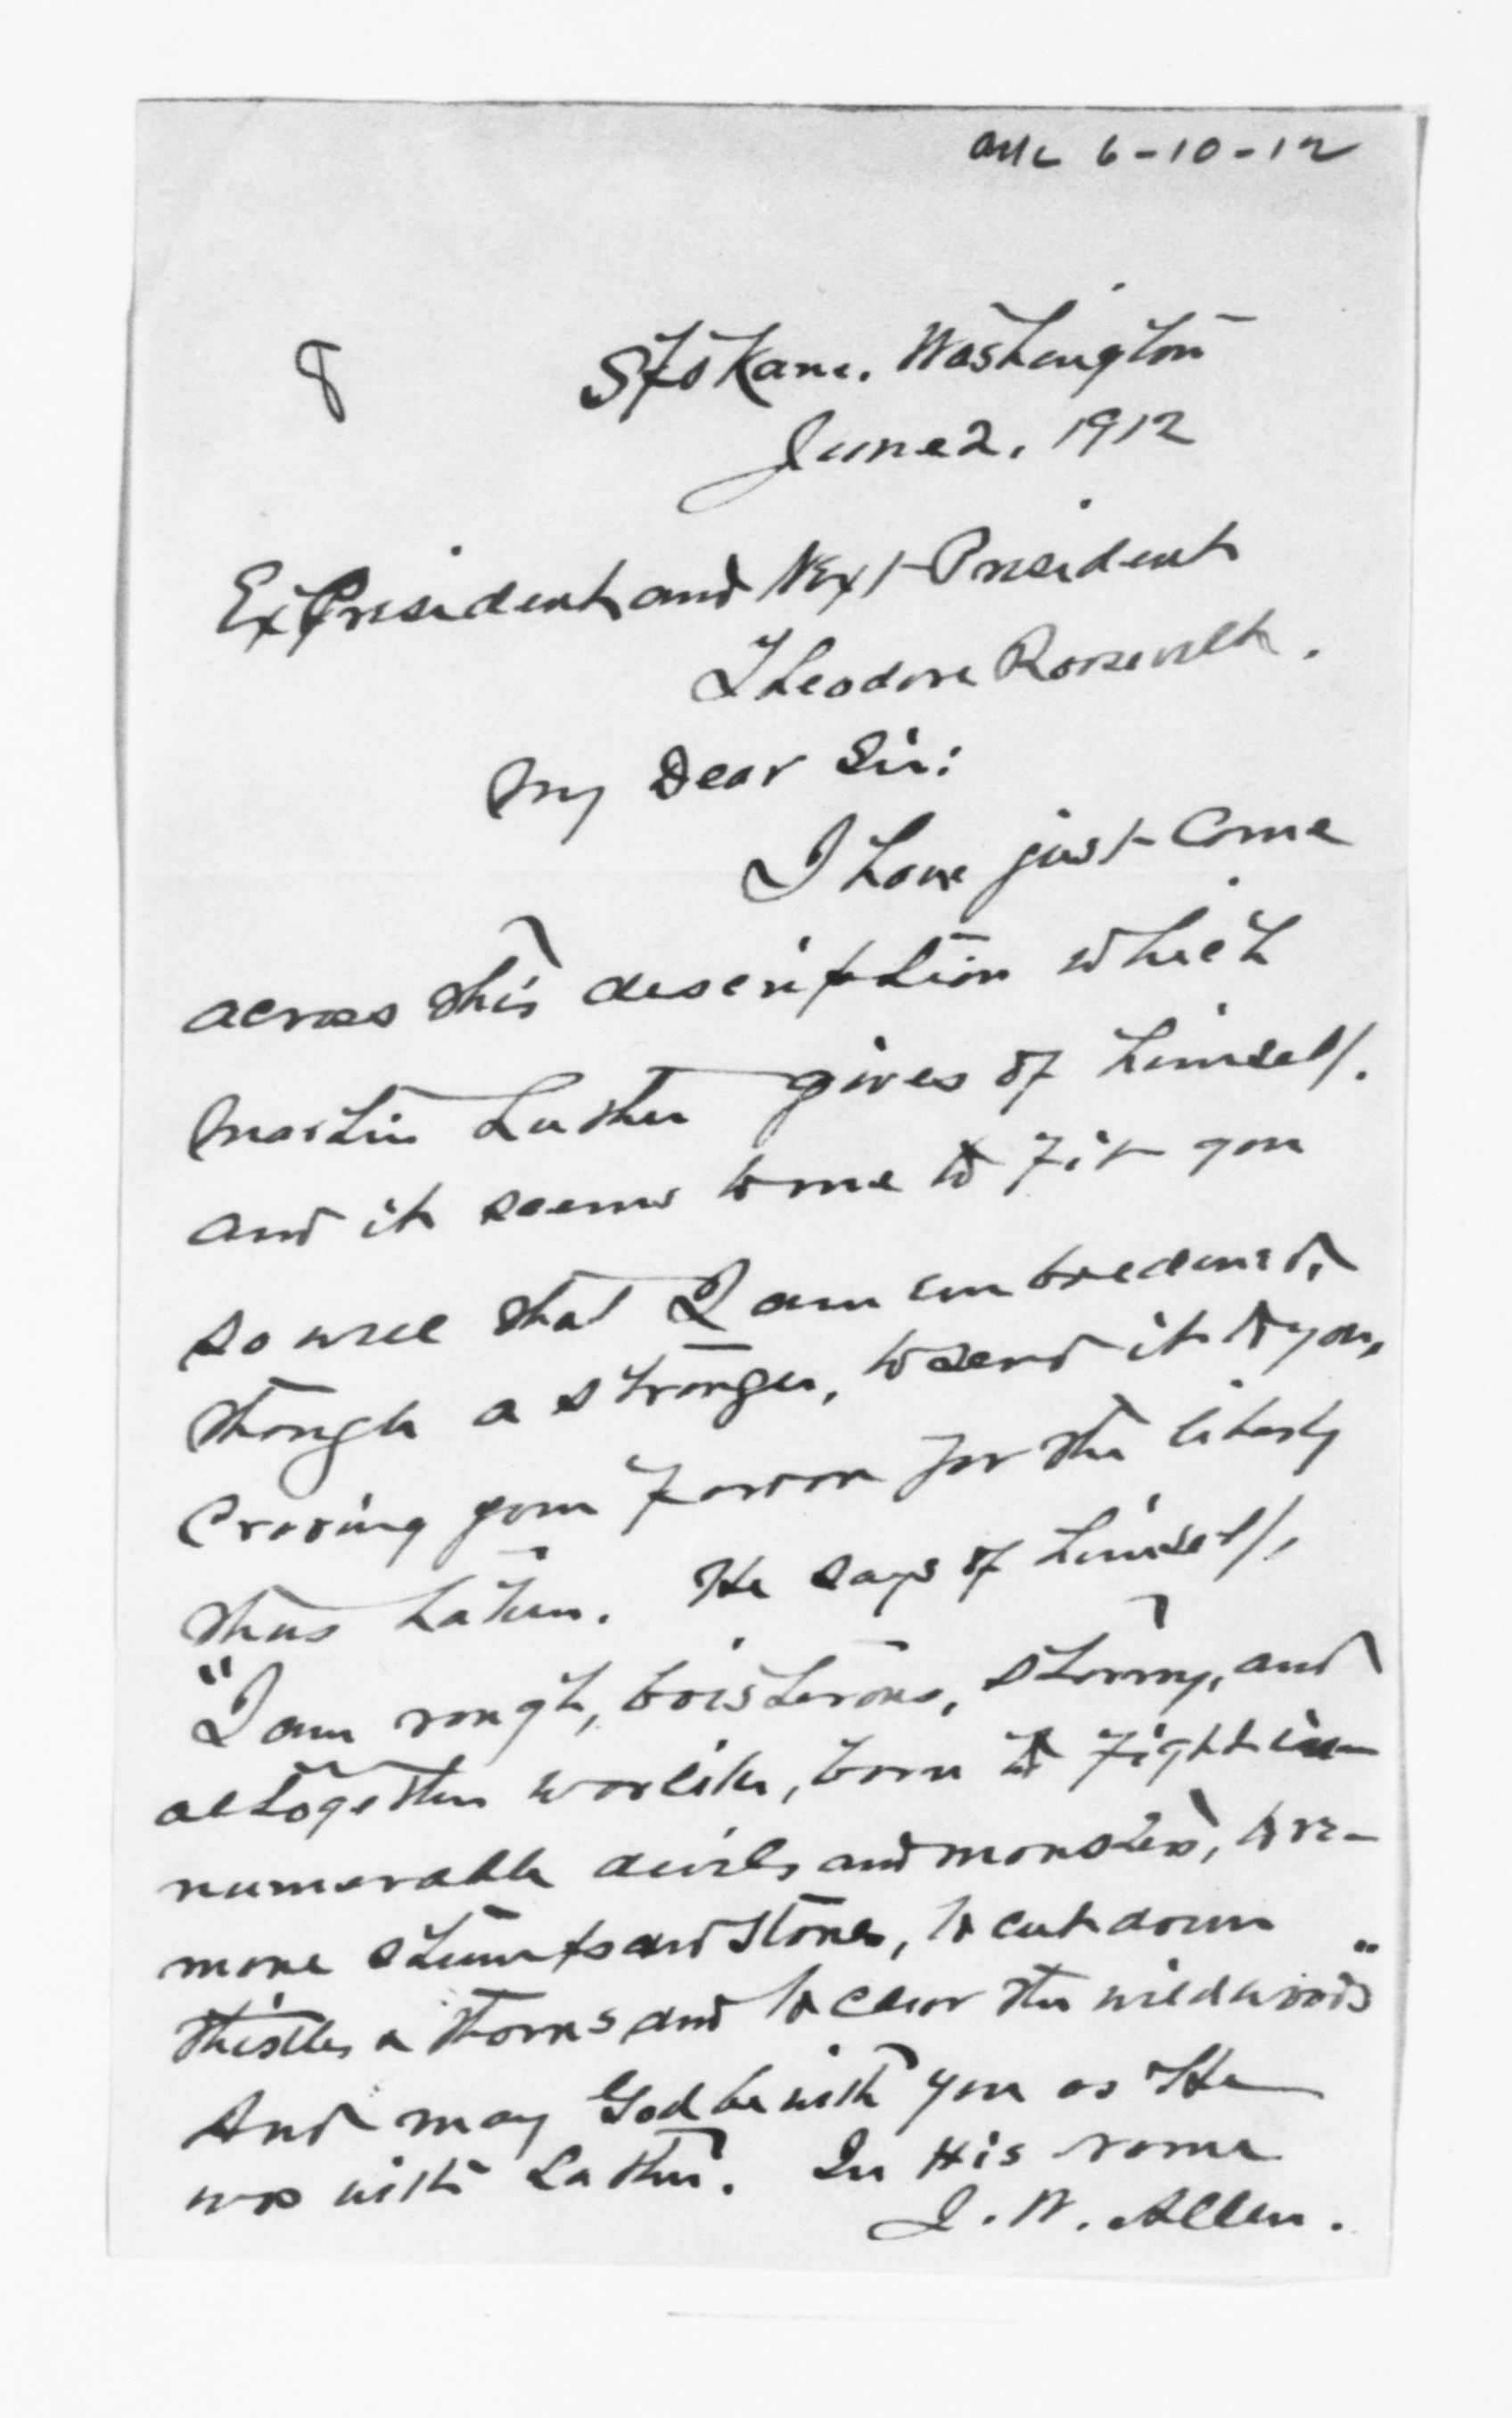 Ack 6-10-12
8
Spokane. Washington
June 2, 1912
Ex President and Next President
Theodore Roosevelt.
My Dear Sir:
I have just come
across this description which
Martin Luther gives of himself.
and it seems to me to fit you
so well that I am emboldened,
though a stranger, to send it to you,
craving your pardon for the liberty
thus taken. He says of himself,
"I am rough, boisterous, stormy, and
altogether warlike, born to fight in-
numerable devils and monsters, to re-
move stumps and stones, to cut down
thistles & thorns and to clear the wild woods"
And may God be with you as He
was with Luther. In His name
J. W. Allen.